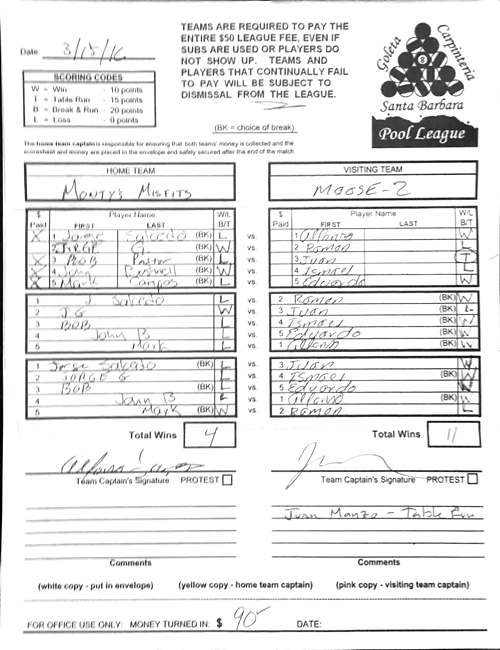 Date: 3/15/16
TEAMS ARE REQUIRED TO PAY THE
ENTIRE $50 LEAGUE FEE, EVEN IF
SUBS ARE USED OR PLAYERS DO
NOT SHOW UP. TEAMS AND
PLAYERS THAT CONTINUALLY FAIL
TO PAY WILL BE SUBJECT TO
DISMISSAL FROM THE LEAGUE.
(BK = choice of break)
SCORING CODES
W = Win - 10 points
T = Table Run - 15 points
B = Break & Run - 20 points
L = Loss - 0 points
Goleta
Carpinteria
8
Santa Barbara
Pool League
The home team captain is responsible for ensuring that both teams' money is collected and the
scoresheet and money are placed in the envelope and safely secured after the end of the match
HOME TEAM
MONTY'S MISFITS
VISITING TEAM
MOOSE-2
$ Paid Player Name FIRST LAST W/L B/T
$ Paid Player Name FIRST LAST W/L B/T
X 1 Jorge Salcedo (BK) L vs. 1 Alfonso W
2 JORGE G (BK) W vs. 2 Ramon L
X 3 BOB (BK) L vs. 3 Juan T
X 4 John (BK) W vs. 4 Ismael L
X 5 Mark Campos (BK) L vs. 5 Eduardo W
1 J. Salcedo L vs. 2 Ramon (BK) W
2 JG W vs. 3 Juan (BK) L
3 BOB L vs. 4 Ismael (BK) W
4 John B L vs. 5 Eduardo (BK) W
5 Mark L vs. 1 Alfonso (BK) W
1 Jorge Salcedo (BK) L vs. 3 Juan W
2 JORGE G L vs. 4 Ismael (BK) W
3 BOB (BK) L vs. 5 Eduardo W
4 John B L vs. 1 Alfonso (BK) W
5 Mark (BK) W vs. 2 Ramon L
Total Wins 4
Total Wins 11
Team Captain's Signature PROTEST
Team Captain's Signature PROTEST
Juan Manzo - Table Run
Comments
Comments
(white copy - put in envelope) (yellow copy - home team captain) (pink copy - visiting team captain)
FOR OFFICE USE ONLY: MONEY TURNED IN: $ 90- DATE: